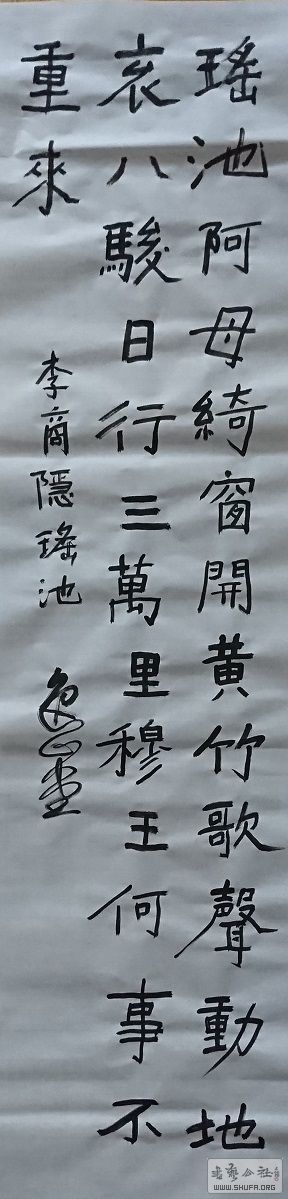 瑤池阿母綺窗開黃竹歌聲動地
哀八駿日行三萬里穆王何事不
重來
李商隱瑤池
WWW.SHUFA.ORG